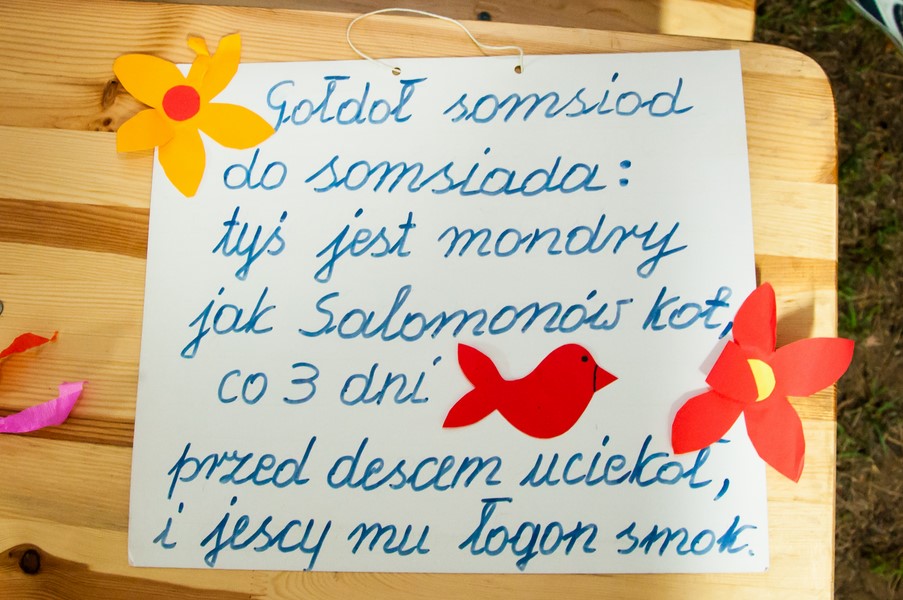 Gołdoł somsiod
do somsiada:
tyś jest mondry
jak Salomonów kot,
co 3 dni
przed descem uciekoł,
i jescy mu łogon smok.